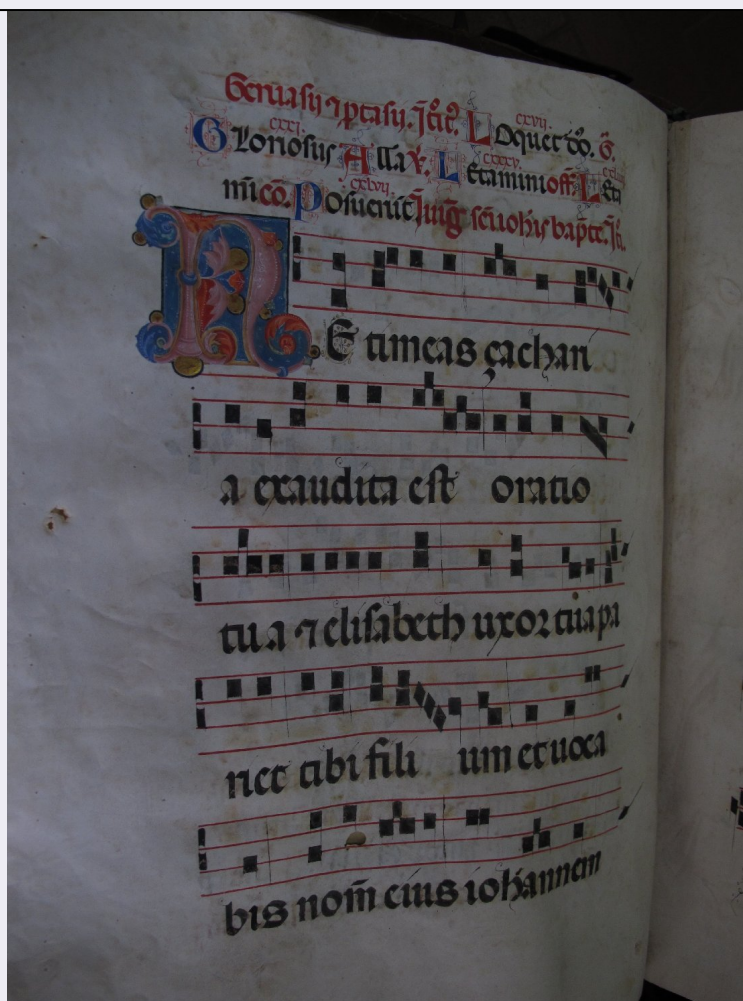 Geruasij ⁊ ꝓtasij. Ītr̄.º Loquet́ dō. G̃.
cxxi. cxvii.
Gloriosus Alla℣. Letamini off̃. Leta
cxxxv.
mī cō. Posuerūt Iuig̃ sc̄i iohīs bapt̄e. Īt.
cxlvii.
NE timeas çachari
a exaudita est oratio
tua ⁊ elisabeth uxor tua pa
riet tibi fili um et uoca
bis nom̄ eius iohannem